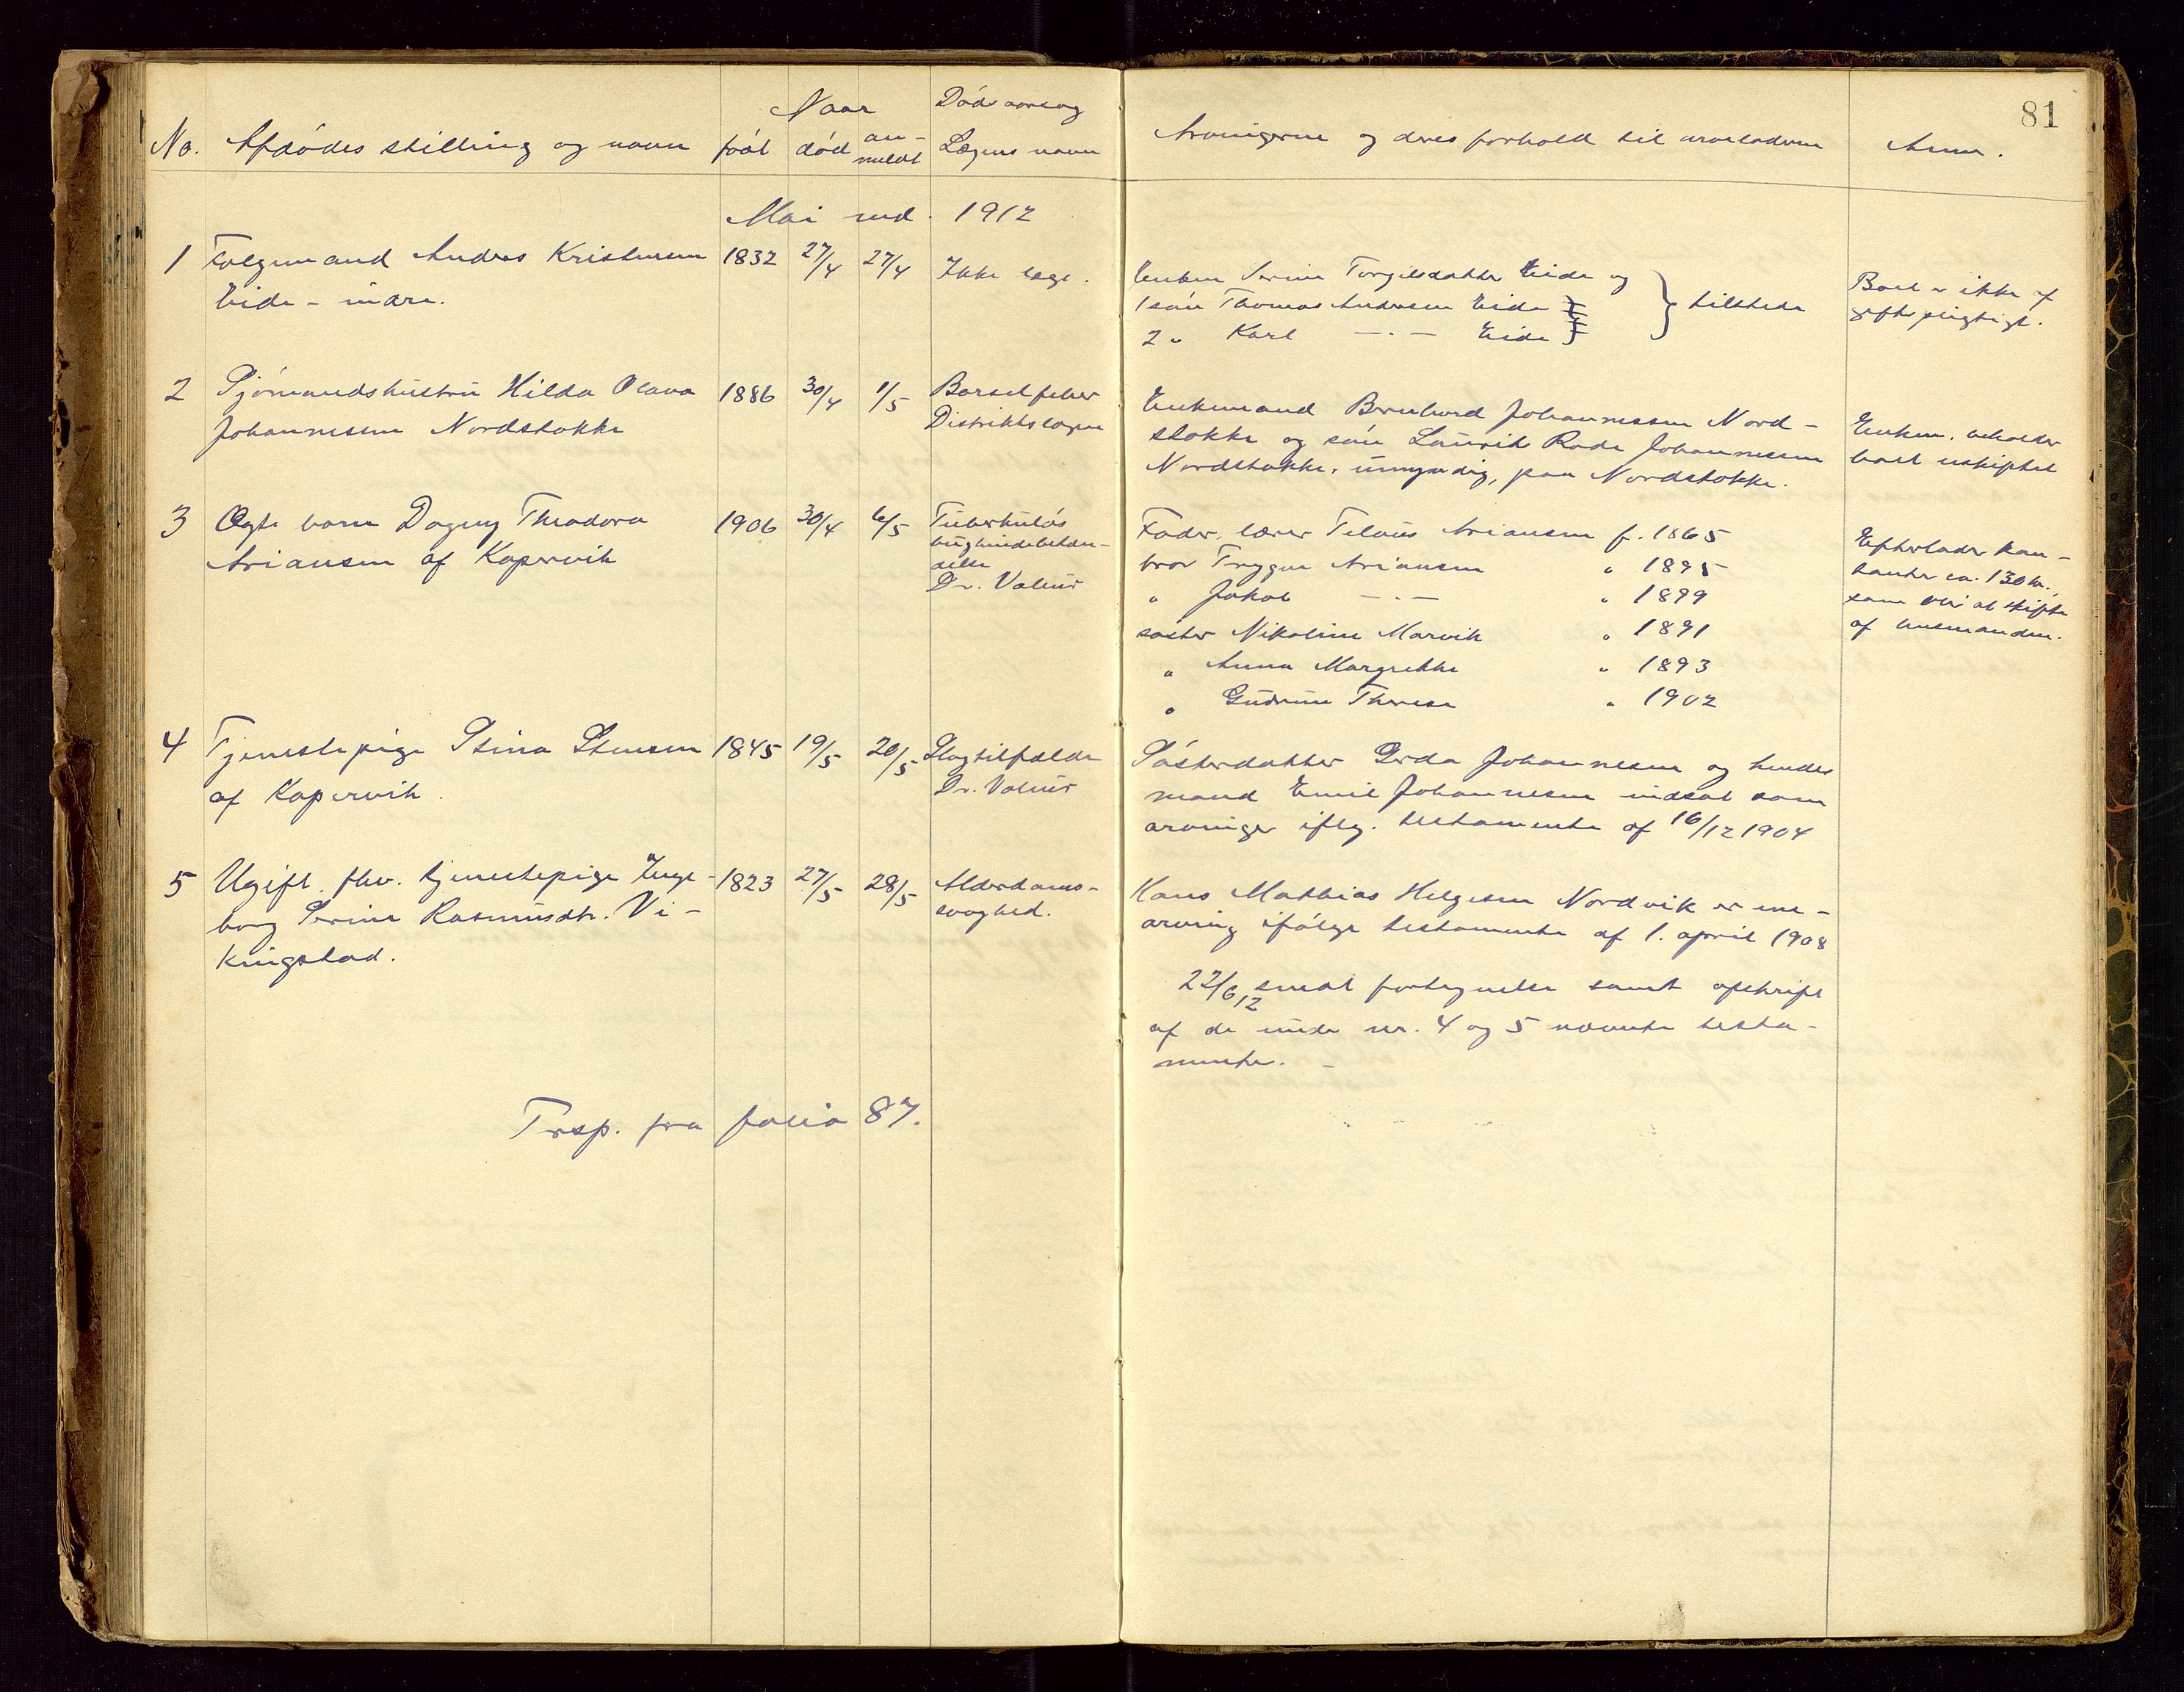 81
Naar
Dødsaarsag
No. Afdødes stilling og navn født død an-meldt Lægens navn
Arvingerne og deres forhold til arveladeren Anm.
Mai md. 1912
1 Folgemand Andreas Kristensen 1832 27/4 27/4 Ikke læge.
Eide - indre.
Enken Serine Torgilsdatter Eide og
1 søn Thomas Andersen Eide
2 " Karl —"— Eide
} tilstede
Boet er ikke af
giftspligtigt.
2 Sjømandshustru Hilda Olava 1886 30/4 1/5 Barselfeber
Johannesen Nordstokke Distriktslægen
Enkemand Bernhard Johannessen Nord-
stokke og søn Laurits Rode Johannesen
Nordstokke, umyndig, paa Nordstokke.
Enkem. beholder
boet uskiftet
3 Ægte barn Dagny Theodora 1906 30/4 6/5 Tuberkuløs
Ariansen af Kopervik bughindebetæn-
delse
Dr. Valeur
Fader, lærer Telaus Ariansen f. 1865
bror Trygve Ariansen " 1895
" Jakob —"— " 1899
søster Nikoline Marvik " 1891
" Anna Margrethe " 1893
" Gudrun Therese " 1902
Efterlader kon-
tanter ca. 130 kr.,
som blir at skifte
af lensmanden.
4 Tjenestepige Stina Stensen 1845 19/5 20/5 Slagtilfælde
af Kopervik. Dr. Valeur
Søsterdatter Gerda Johannesen og hendes
mand Emil Johannesen indsat som
arvinger iflg. testamente af 16/12 1904
5 Ugift. fhv. tjenestepige Inge- 1823 27/5 28/5 Alderdoms-
borg Serine Rasmusdtr. Vi- svaghed.
kingstad.
Hans Mathias Helgesen Nordvik er ene-
arving ifølge testamente af 1. april 1908
22/6 12 sendt fortegnelse samt afskrift
af de under nr. 4 og 5 nævnte testa-
menter. -
Trsp. fra folio 87.